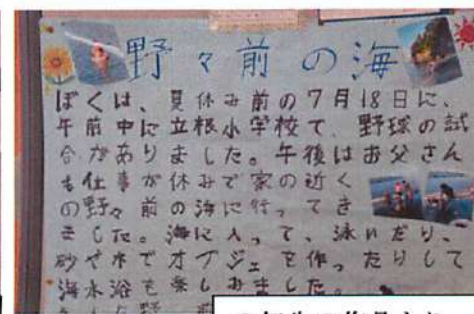 野々前の海
ぼくは、夏休み前の7月18日に、
午前中に立根小学校で、野球の試
合がありました。午後はお父さん
も仕事が休みで家の近く
の野々前の海に行ってき
ました。海に入って、泳いだり、
砂や木でオブジェを作ったりして
海水浴を楽しみました。